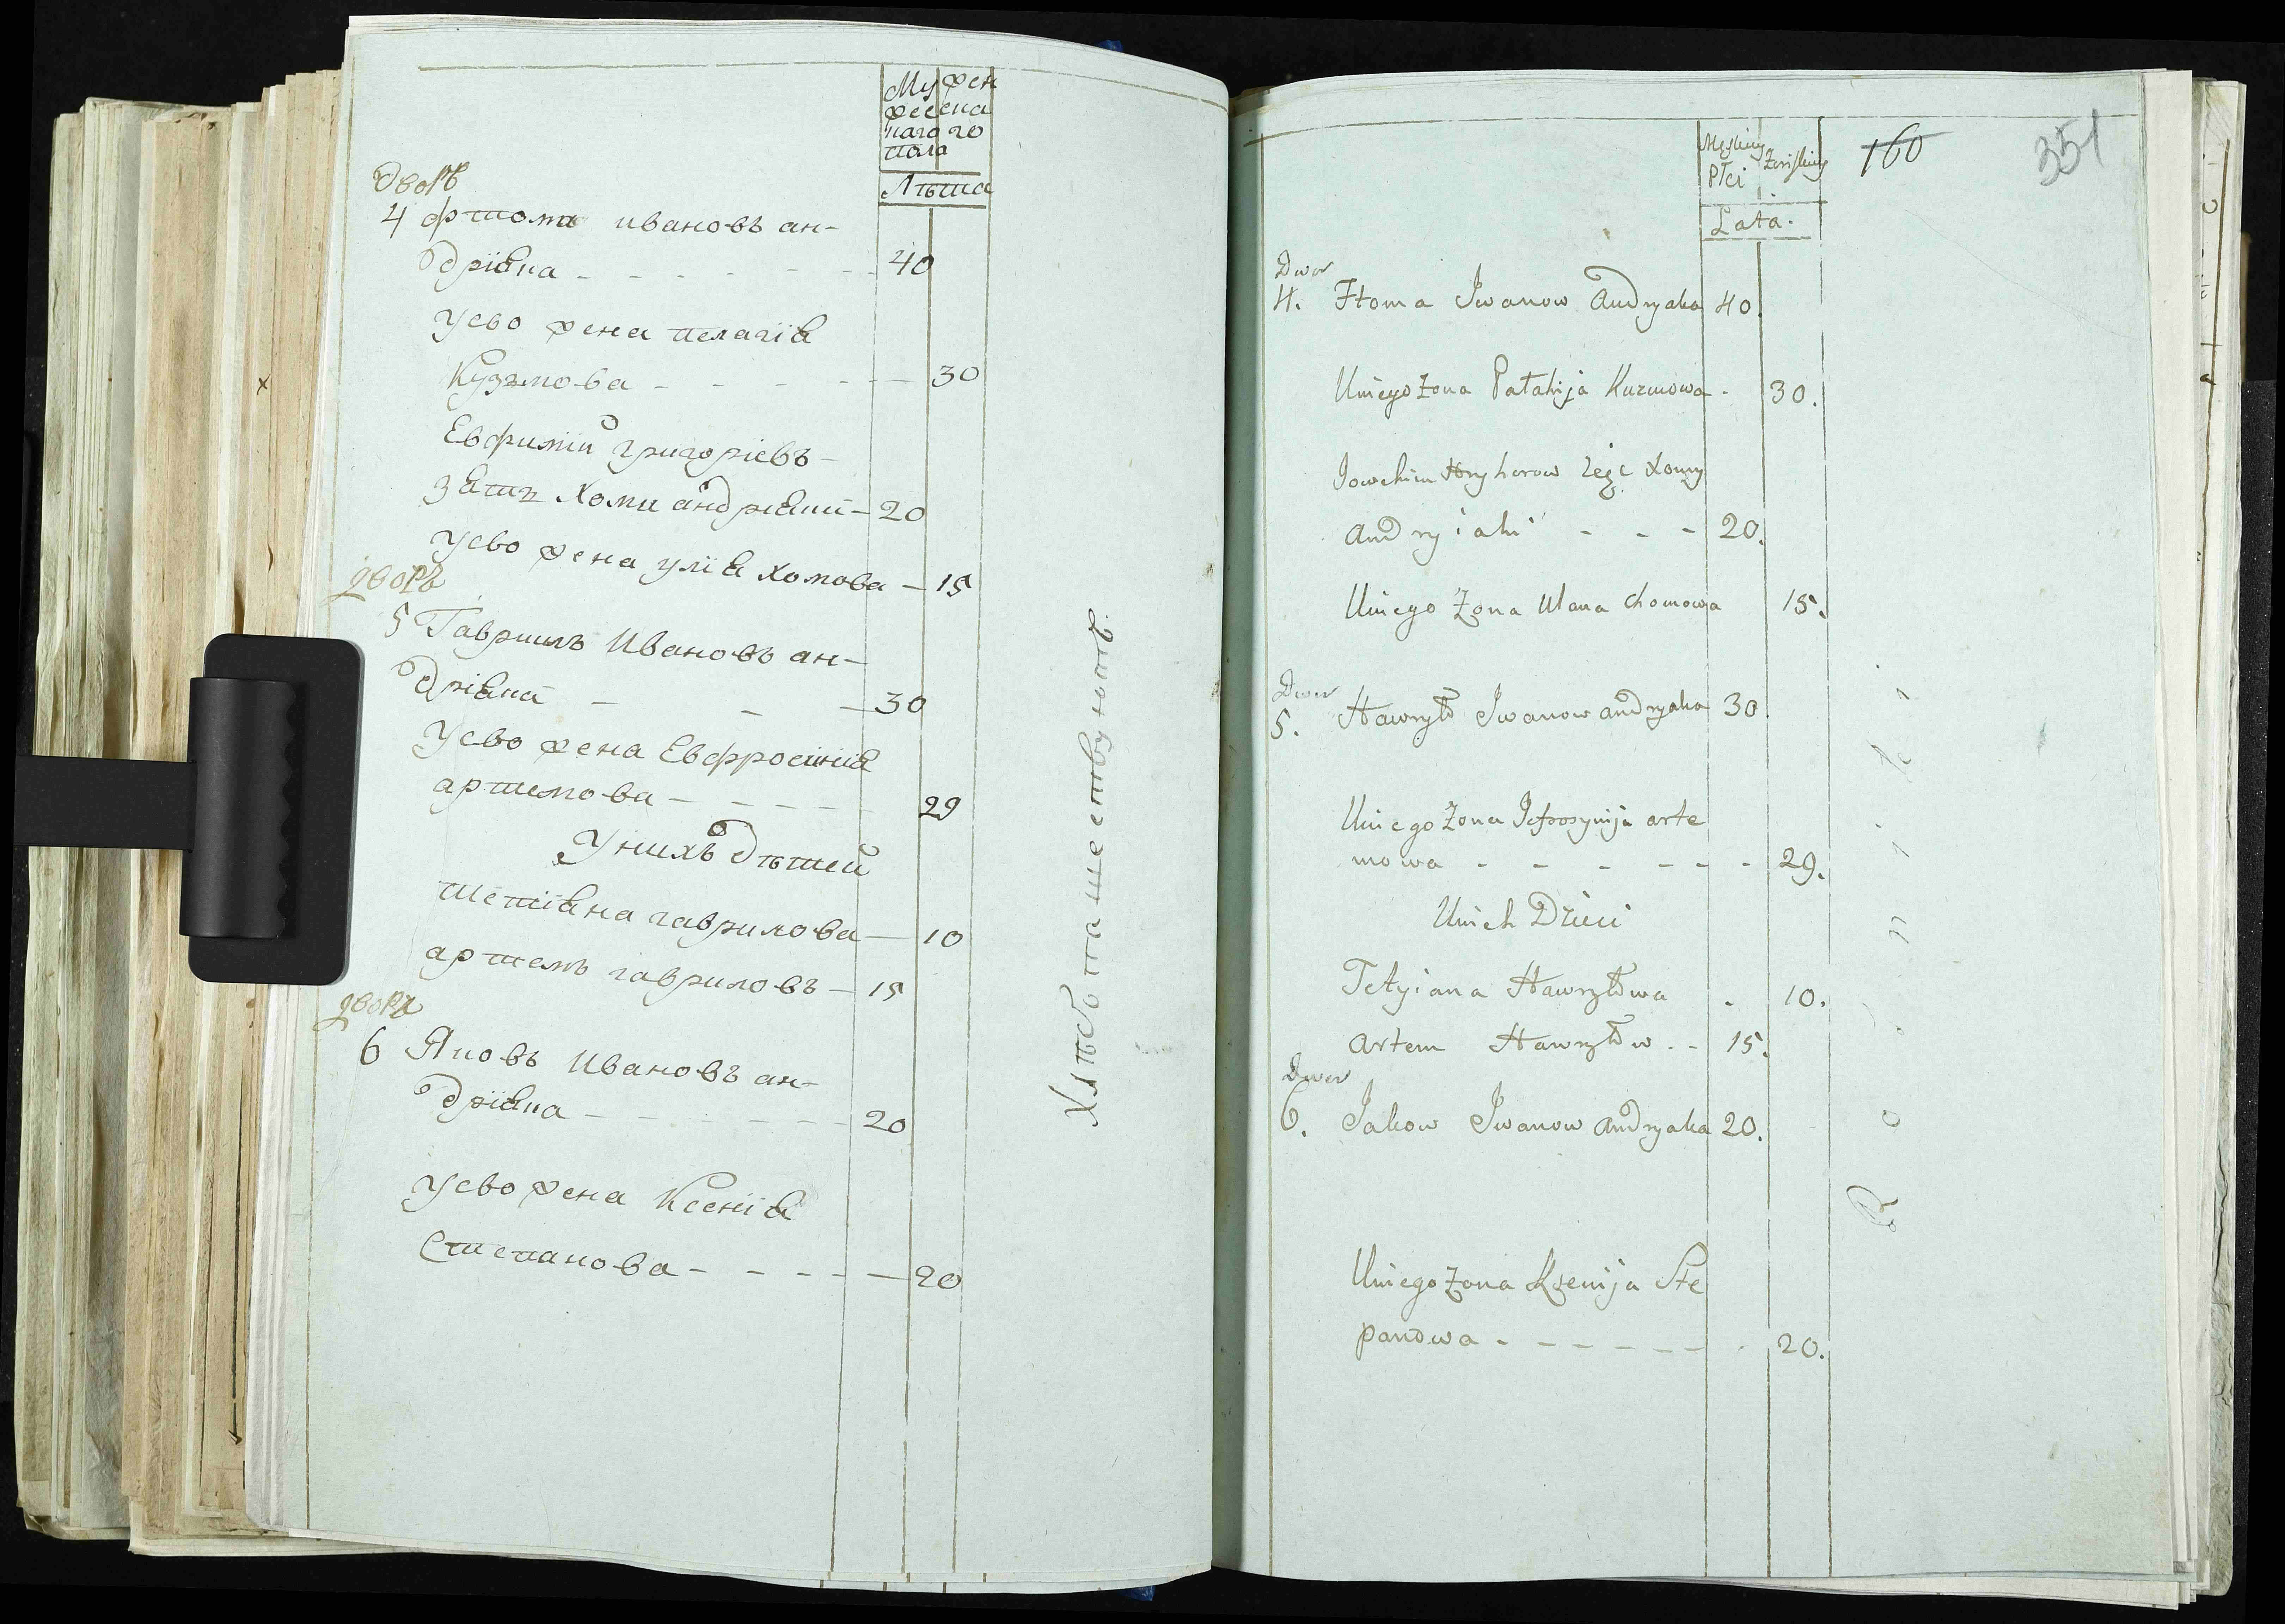 Му жен
жесска
наго го
пола
Лѣта
Дворъ
4 Фтома ивановъ ан-
дріяка - - - - - - 40
Уево жена Пелагія
Кузмова - - - - - - 30
Евфимій григоріевъ -
зять Хоми андріяки - 20
Уево жена улія Хомова - 15
дворъ
5 Гаврiилъ Ивановъ ан-
дріяка - - - 30
Уево жена Евфросинія
артемова - - - - - 29
У нихъ дѣтей
Тетіяна гаврилова - 10
артемъ гавриловъ - 15
дворъ
6 Яковъ Ивановъ ан-
дріяка - - - - - - 20
Уево жена Ксенія
Степанова - - - - - 20
Хлѣбопашествуютъ.
160
351
Męskiey Żeńskiey
Płci
Lata.
Dwor
4. Ftoma Iwanow Andryaka 40.
Uniego Zona Pałahija Kuzmowa - 30.
Iowchim Hryhorow Zęć Xomy
Andryiaki - - - 20.
Uniego Zona Ulana Chomowa 15.
Dwor
5. Hawryło Iwanow andryaka 30.
Uniego Zona Iefrosynija arte
mowa - - - - - - 29.
Unich Dzieci
Tetyiana Hawryłowa - 10.
Artem Hawryłow - - 15.
Dwor
6. Iakow Iwanow andryaka 20.
Uniego Zona Ksenija Ste
panowa - - - - - - - 20.
Rolniki